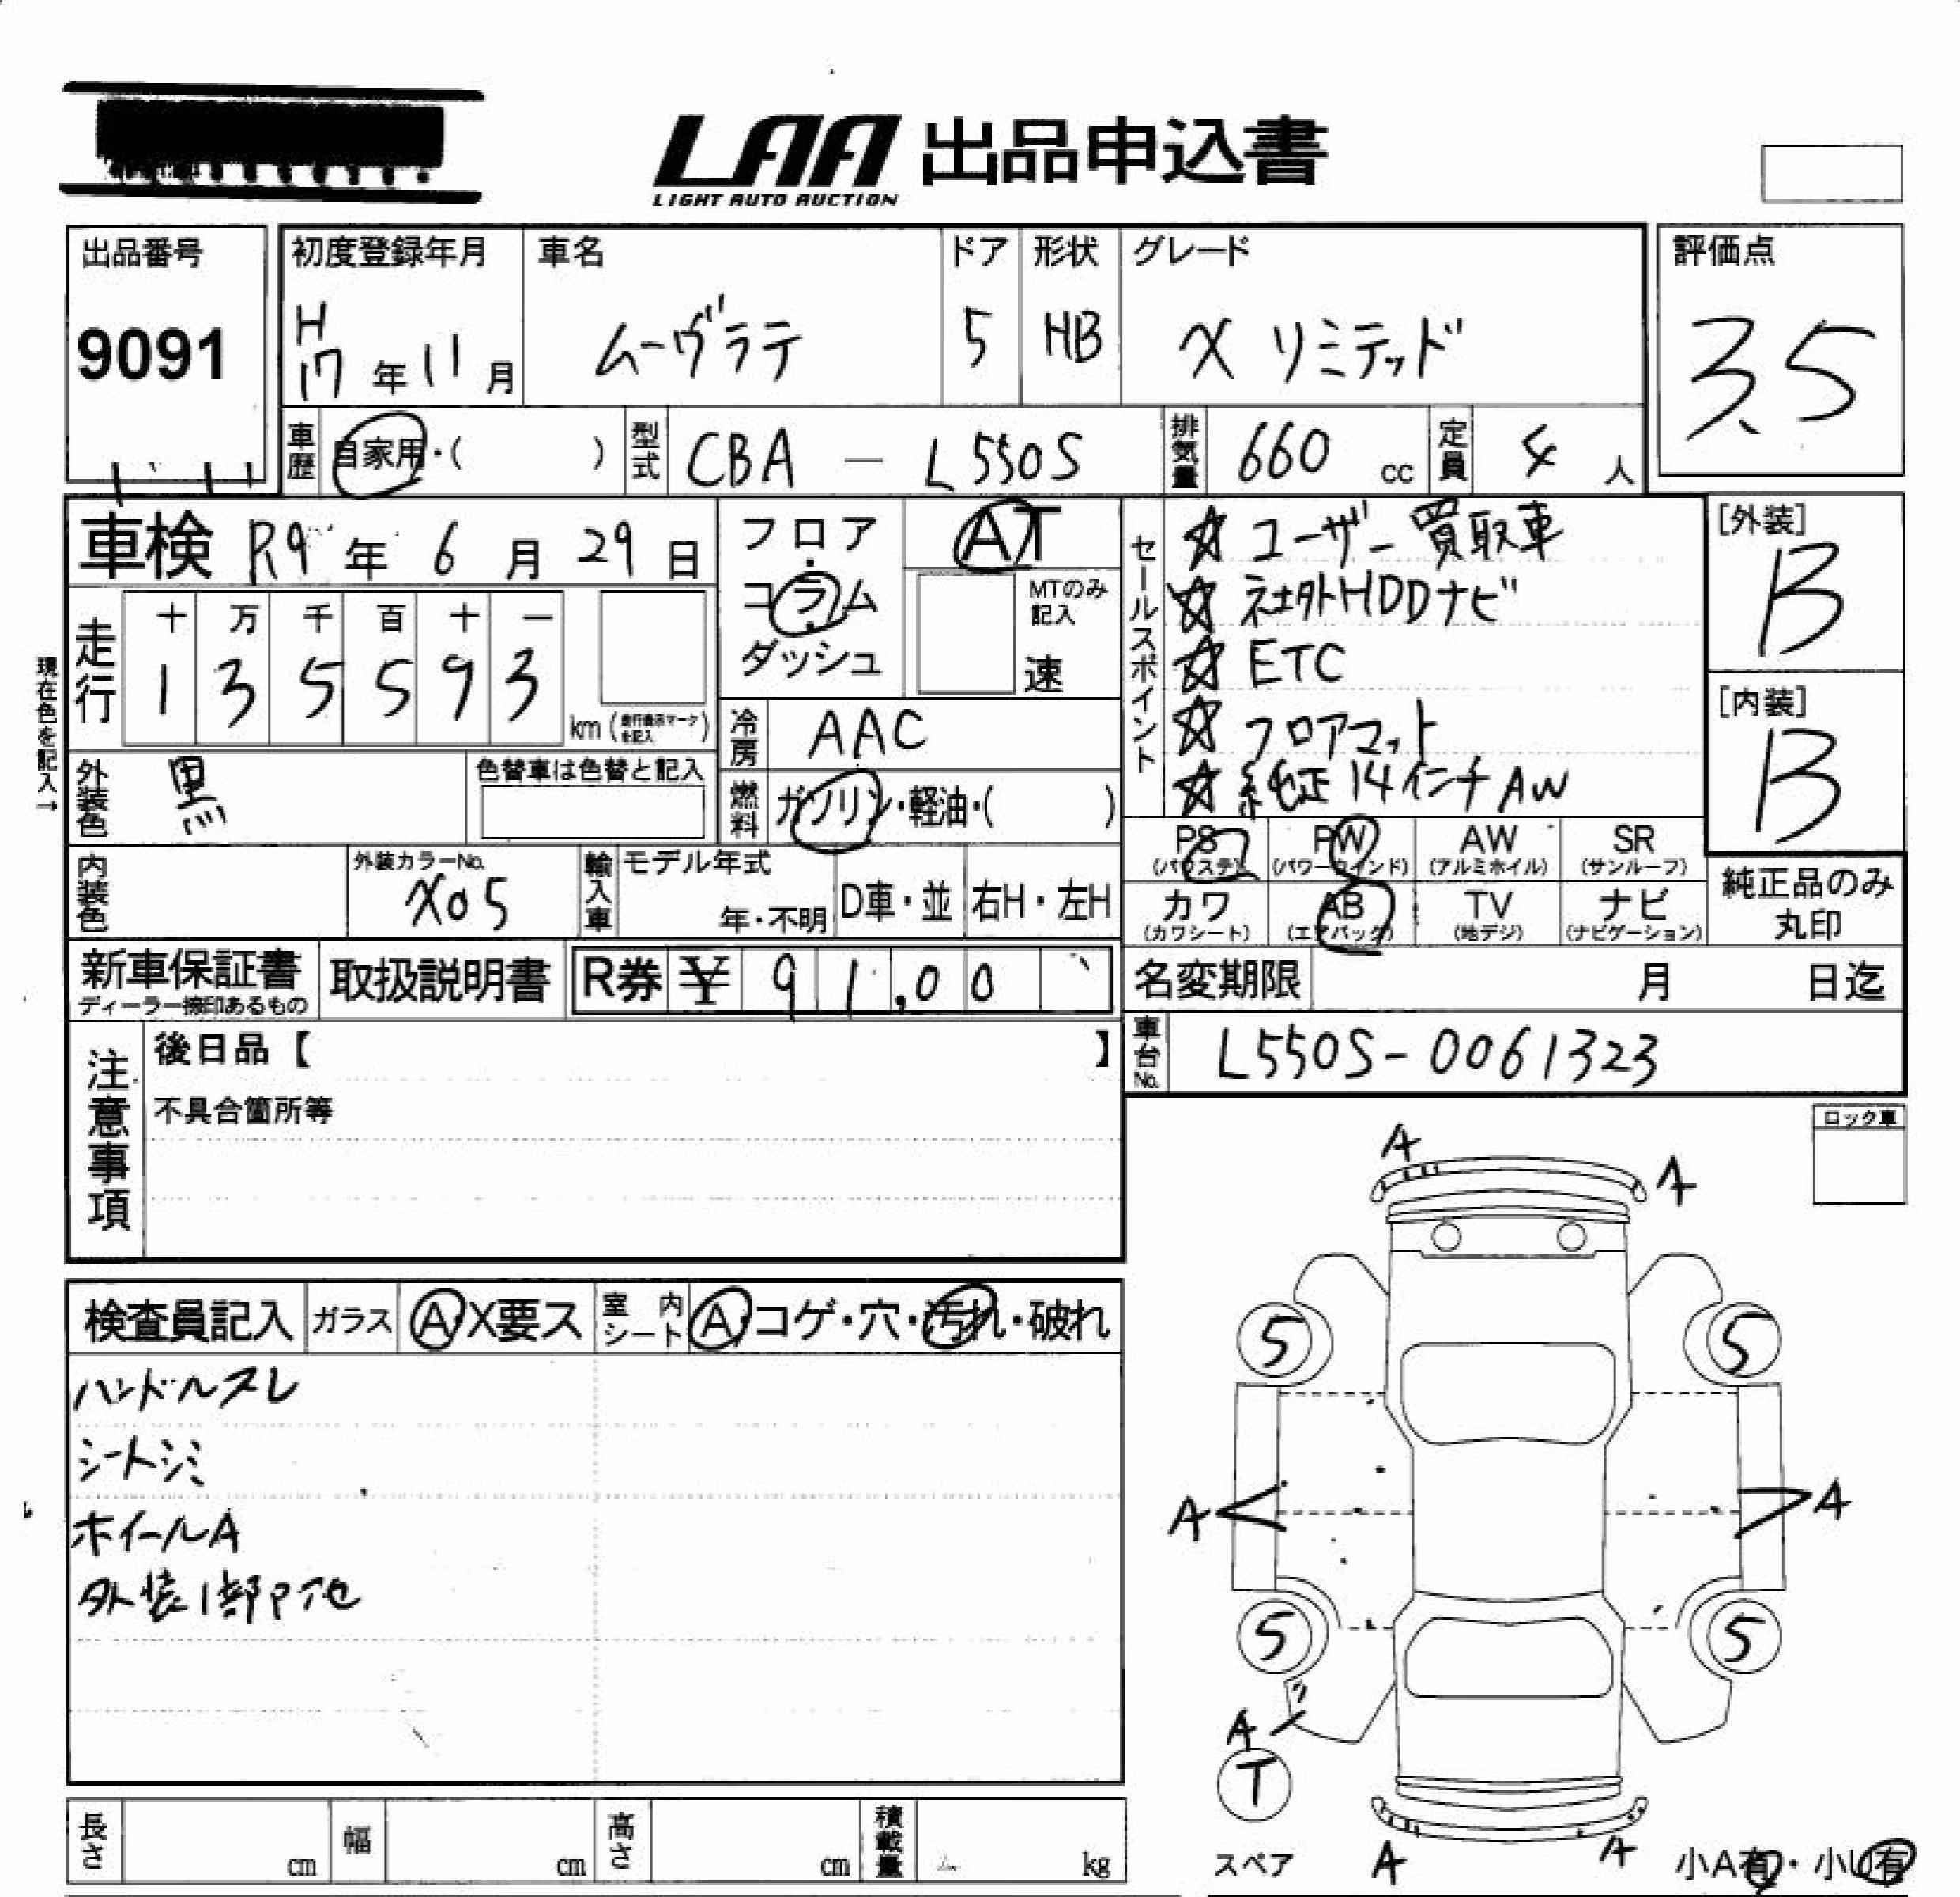 LAA 出品申込書
LIGHT AUTO AUCTION
出品番号
9091
初度登録年月
H
17年11月
車名
ムーヴラテ
ドア
5
形状
HB
グレード
X リミテッド
評価点
3.5
車歴
自家用・( )
型式
CBA - L550S
排気量
660 cc
定員
4 人
車検 R9年6月29日
フロア
・
コラム
・
ダッシュ
AT
MTのみ
記入
速
セールスポイント
☆ ユーザー買取車
☆ 社外HDDナビ
☆ ETC
☆ フロアマット
☆ 純正14インチAW
[外装]
B
[内装]
B
現在色を記入→
走行
十 万 千 百 十 一
1 3 5 5 9 3
km (走行表示マークを記入)
冷房
AAC
外装色
黒
色替車は色替と記入
燃料
ガソリン・軽油・( )
PS
(パワステ)
PW
(パワーウインド)
AW
(アルミホイル)
SR
(サンルーフ)
内装色
外装カラーNo.
X05
輸入車
モデル年式
年・不明
D車・並
右H・左H
カワ
(カワシート)
AB
(エアバッグ)
TV
(地デジ)
ナビ
(ナビゲーション)
純正品のみ
丸印
新車保証書
ディーラー捺印あるもの
取扱説明書
R券 ¥ 91,00
名変期限 月 日迄
注意事項
後日品【 】
不具合箇所等
車台No.
L550S-0061323
ロック車
A
A
検査員記入
ガラス
A・X要ス
室内シート
A・コゲ・穴・汚れ・破れ
ハンドルスレ
シートシミ
ホイールA
外装1部P他
5 5
A A
5 5
A
T
スペア
A A
小A有・小U有
長さ cm
幅 cm
高さ cm
積載量 kg